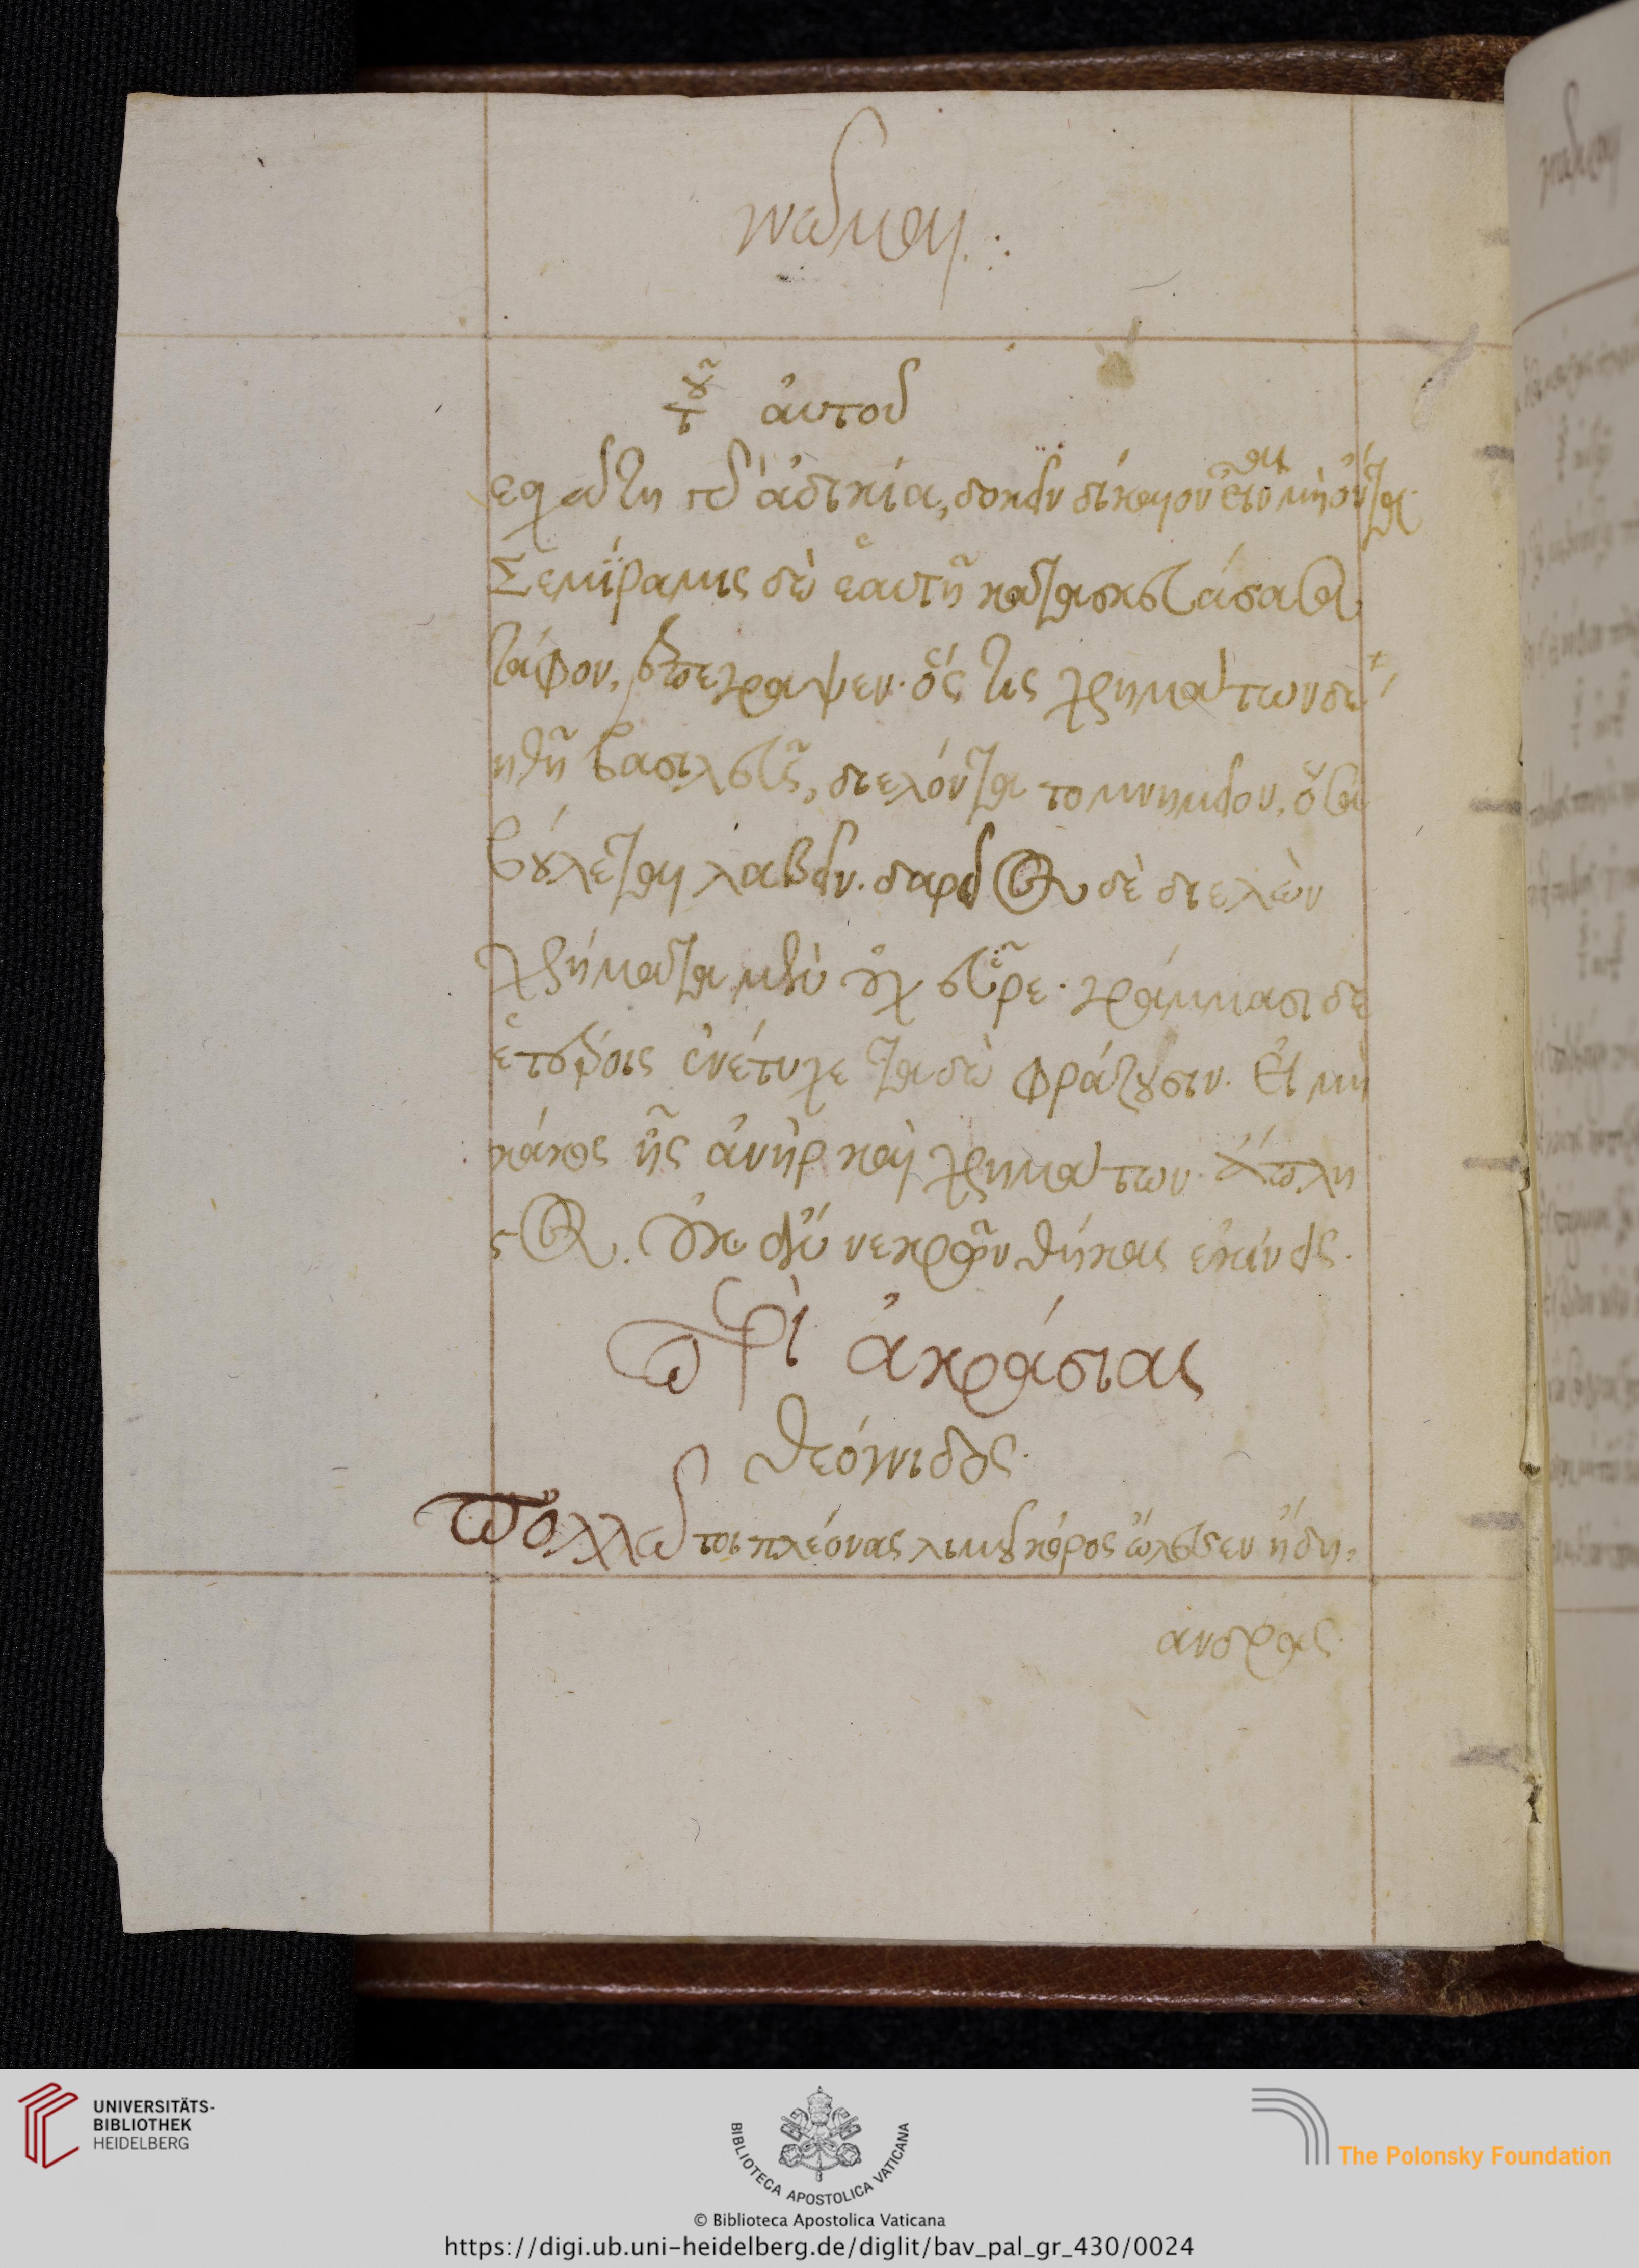 γνῶμαι.:
τοῦ ἀυτοῦ
εσχάτη γὰρ ἀδικία, δοκεῖν δίκαιον εἶναι μὴ ὄντα.
Σεμίραμις δὲ ἑαυτῇ κατασκευάσασα
τάφον, ἐπέγραψεν. ὅς τις χρημάτων δε
ηθῇ βασιλεὺς, διελόντα το μνημεῖον, ὅσα
βούλεται λαβεῖν. δαρεῖος δὲ διελὼν
χρήματα μὲν οὐχ εὗρε. γράμμασι δὲ
ἑτέροις ἐνέτυχε τάδε φράζουσιν. Εἰ μὴ
κάκος ἦς ἀνὴρ καὶ χρημάτων ἄπλη
στος. οὐκ ἂν νεκρῶν θήκας εκίνεις.
Περὶ ἀκράσιας
θεόγνιδος.
Πολλῶ τοι πλέονας λιμοῦ κόρος ὤλεσεν ἤδη,
ανδρας.
UNIVERSITÄTS-
BIBLIOTHEK
HEIDELBERG
BIBLIOTECA APOSTOLICA VATICANA
The Polonsky Foundation
© Biblioteca Apostolica Vaticana
https://digi.ub.uni-heidelberg.de/diglit/bav_pal_gr_430/0024